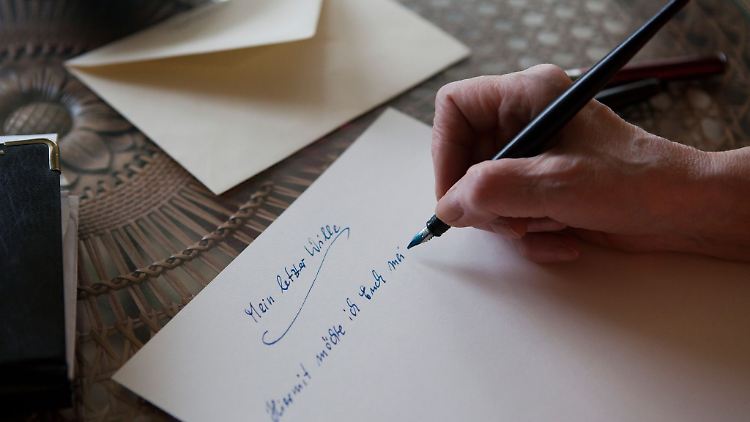 Mein letzter Wille
Hiermit möchte ich Euch mi